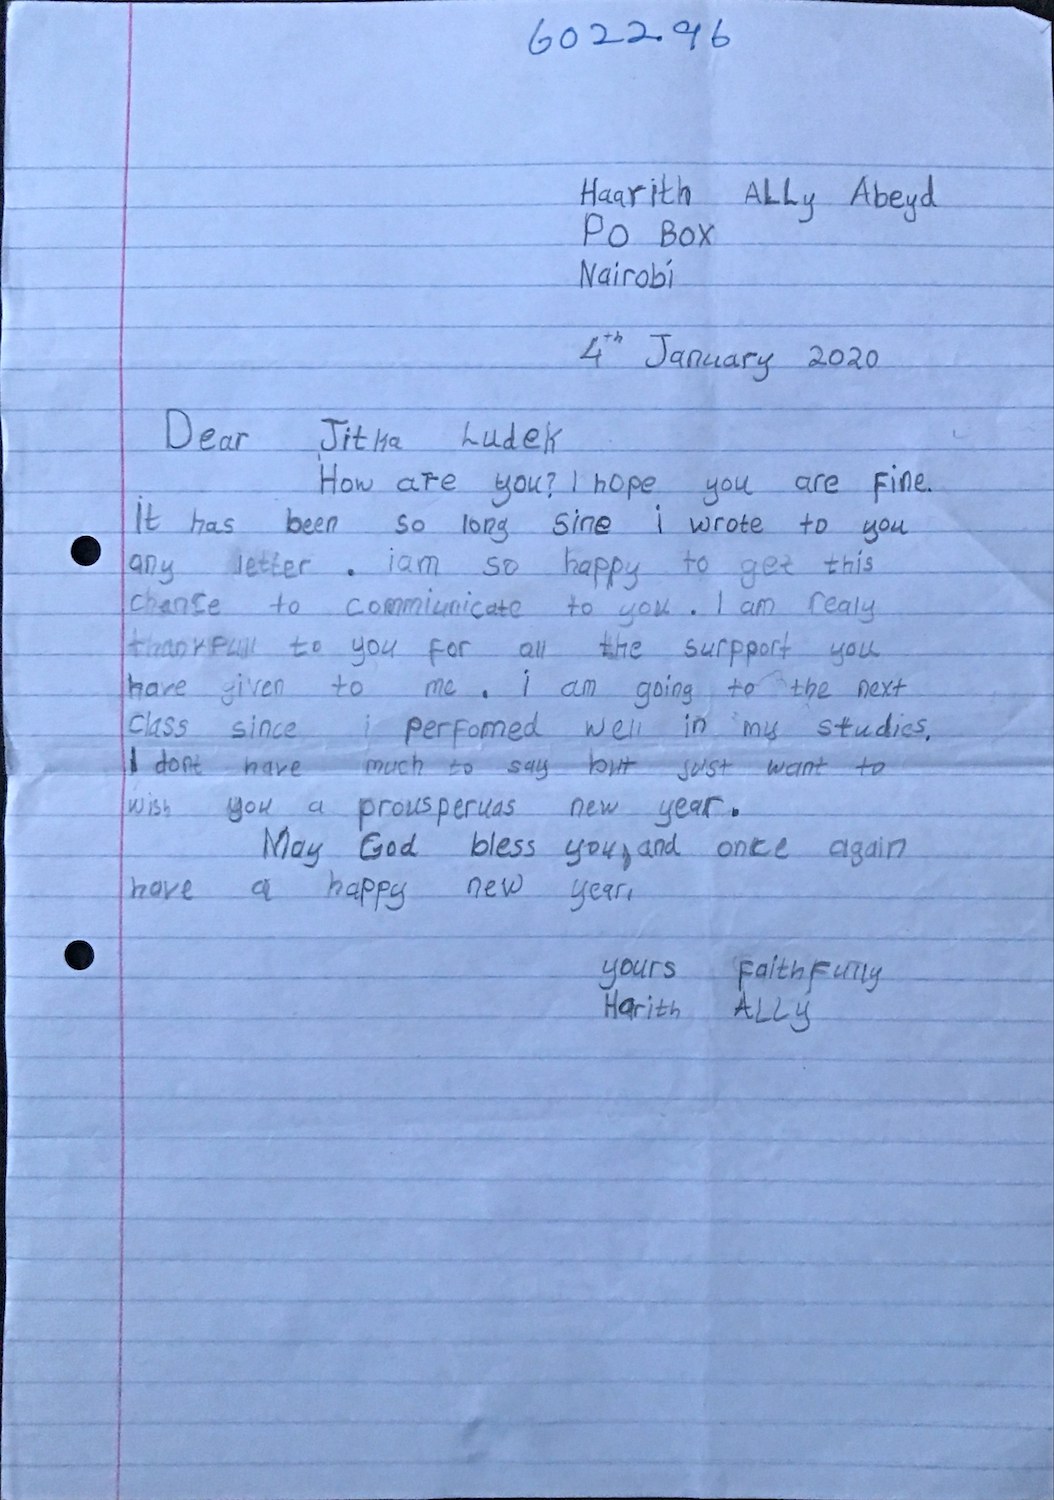 6022.96
Haarith ALLy Abeyd
PO BOX
Nairobi
4th January 2020
Dear Jitka Ludek
How are you? I hope you are Fine.
It has been so long sine i wrote to you
any letter. iam so happy to get this
chanse to commiunicate to you. I am realy
thankfull to you for all the surpport you
have given to me. i am going to the next
class since i perfomed well in my studies.
I dont have much to say but just want to
wish you a prousperuas new year.
May God bless you, and once again
have a happy new year.
yours FaithFully
Harith ALLy